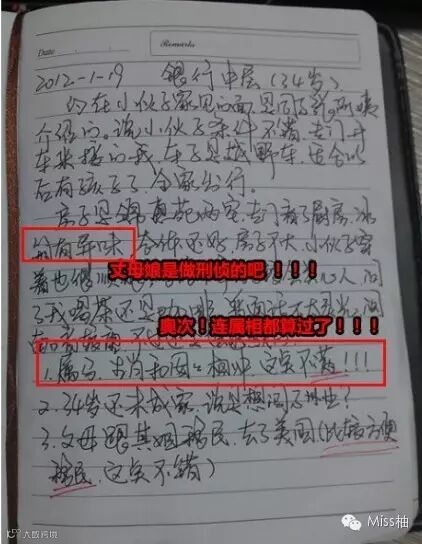 Date
Remarks
2012-1-19 银行中层（34岁）
约在小伙子家见的面，是同事张阿姨
介绍的。说小伙子条件不错，专门开
车来接的我，车子是越野车，适合以
后有孩子了，全家出行。
房子是两室，专门看了厨房，冰
箱有异味 还好，房子不大，小伙子穿
着也 心人，问
丈母娘是做刑侦的吧！！！
了我喝茶还是
奥次！连属相都算过了！！！
1. 属马，生肖和囡囡 这点不!!!
2. 34岁还未成家，说是想闯下事业？
3. 父母跟其姐移民，去了美国（比较方便
移民，这点不错）
大数跨境
Miss柚